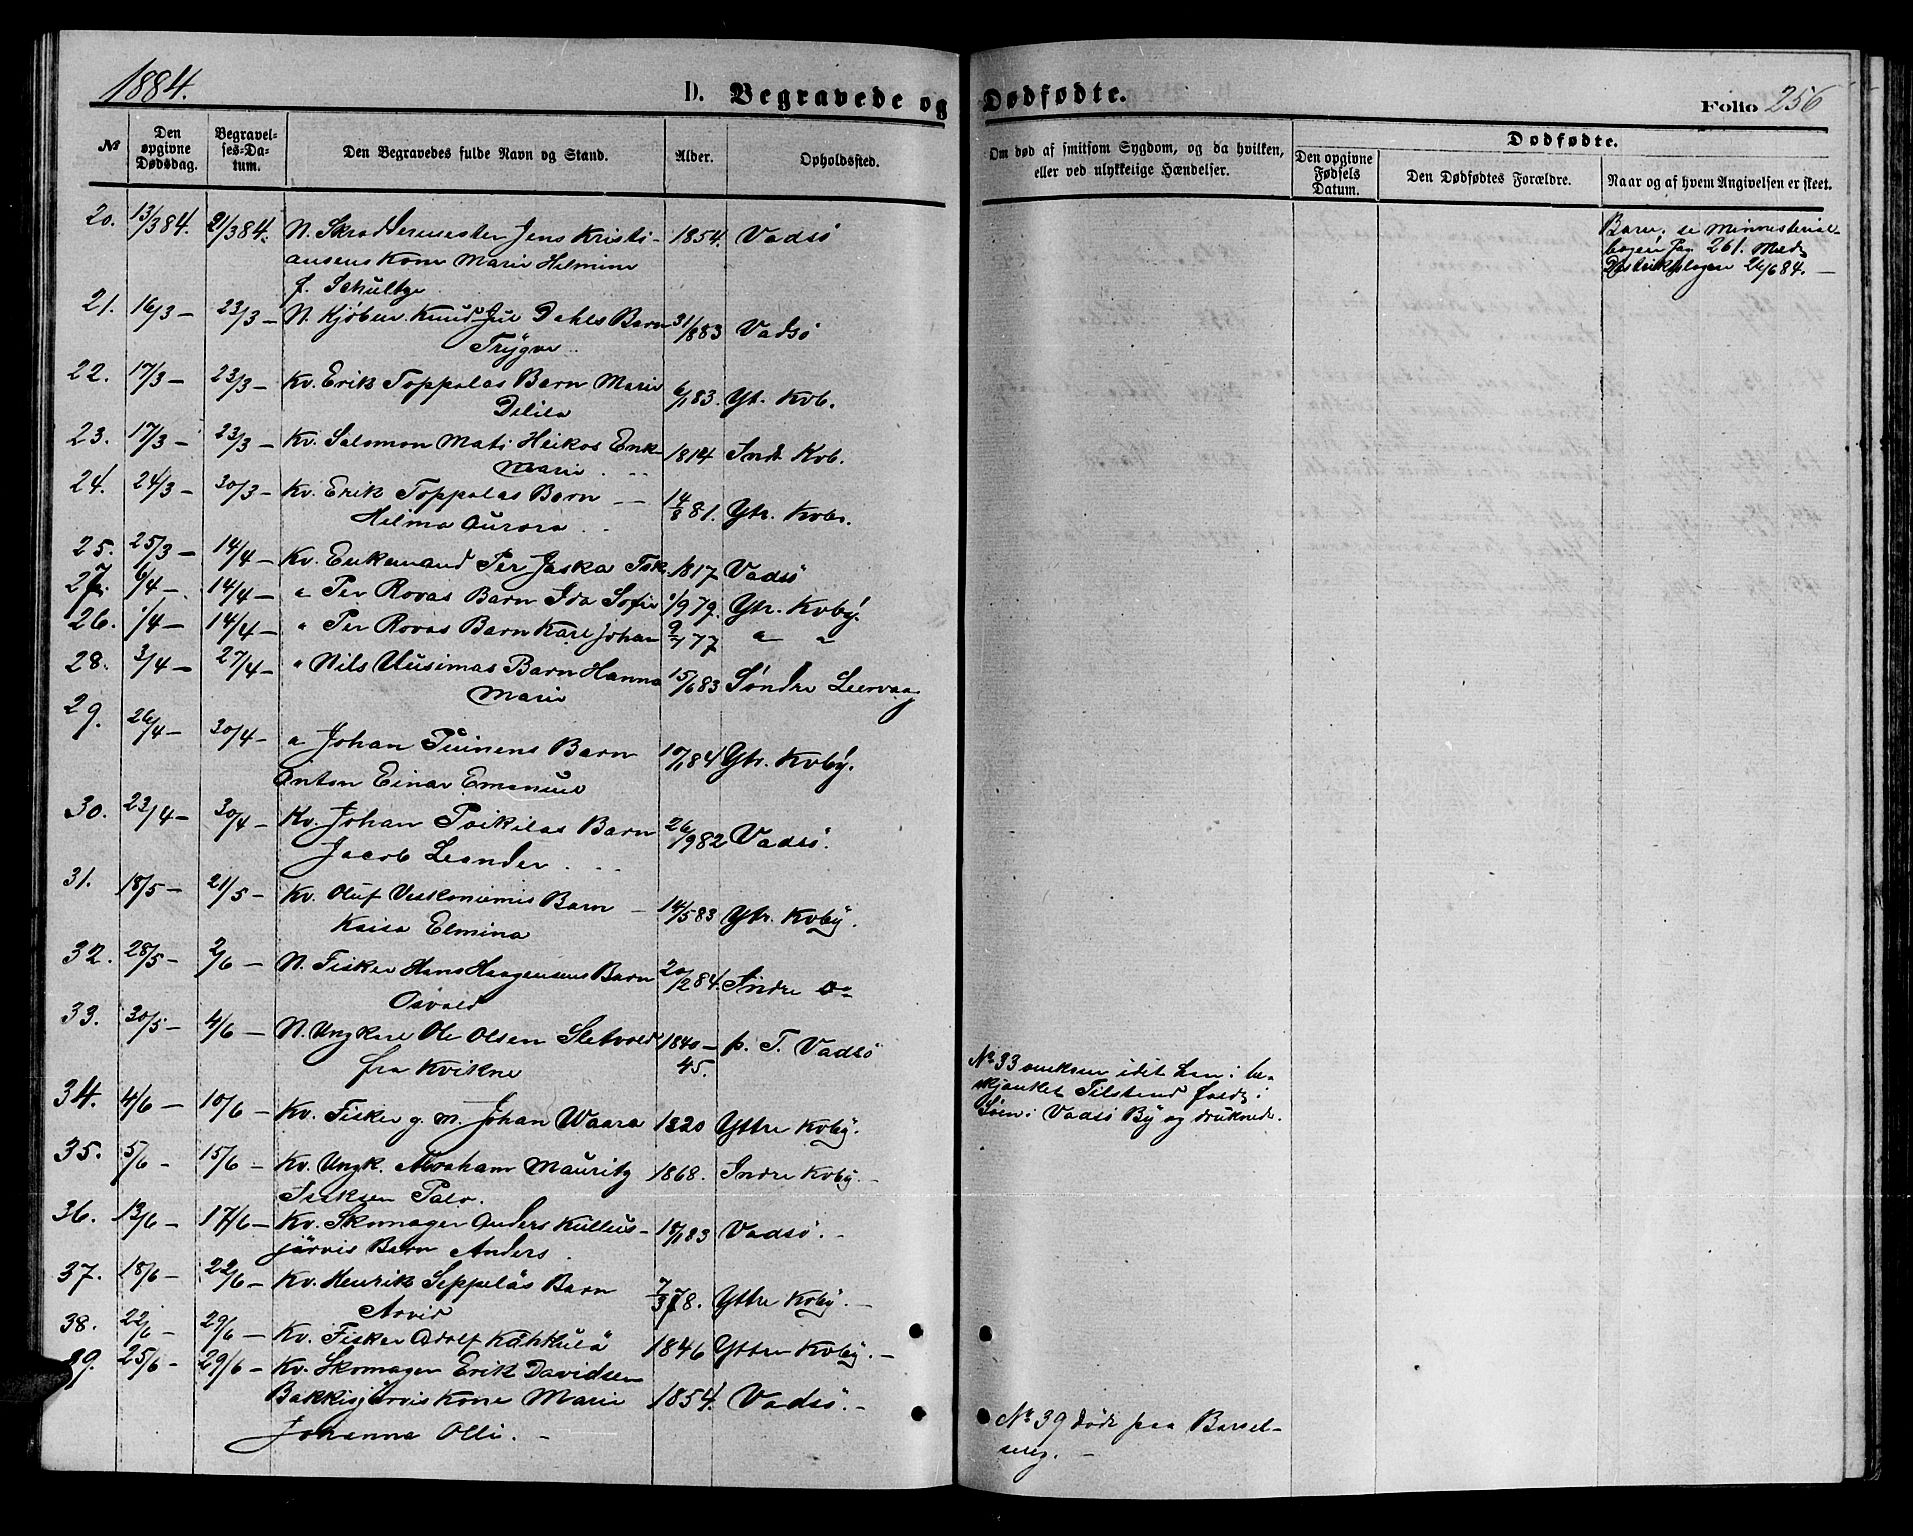 1884.
D. Begravede og Dødfødte.
Folio 256
№
Den opgivne Dødsdag.
Begravelses-Datum.
Den Begravedes fulde Navn og Stand.
Alder.
Opholdssted.
Om død af smitsom Sygdom, og da hvilken, eller ved ulykkelige Hændelser.
Dødfødte.
Den opgivne Fødsels Datum.
Den Dødfødtes Forældre.
Naar og af hvem Angivelsen er skeet.
20. 13/3 84. 21/3 84. N. Skræddermester Jens Kristi- 1854. Vadsö
ansens Kone Marie Helmine
f. Schultze
21. 16/3 – 23/3 – N. Kjöbm. Knud Jul Dahls Barn 31/8 83 Vadsö
Trygve
22. 17/3 – 23/3 – Kv. Erik Toppolas Barn Marie 6/1 83. Yt. Kvb.
Delila
23. 17/3 – 23/3 – Kv. Salomon Mats Heikas Enk 1814 Ind. Kvb.
Marie
24. 24/3 – 30/3 – Kv. Erik Toppolas Barn – 14/8 81. Ytr. Kvb.
Hilma Aurora
25. 25/3 – 14/4 – Kv. Enkemand Per Jaska Isk. 1817 Vadsö
27. 6/4 – 14/4 – " Per Rovas Barn Ida Sofie 1/9 79. Ytr. Kvby.
26. 1/4 – 14/4 – " Per Rovas Barn Karl Johan 9/7 77 " "
28. 3/4 – 27/4 – " Nils Uusimas Barn Hanna 15/6 83 Söndre Leervaag
Marie
29. 26/4 – 30/4 – " Johan Puinens Barn 10/1 84 Ytr. Kvby.
Anton Einar Emanuel
30. 23/4 – 30/4 – Kv. Johan Poikilas Barn 26/9 82 Vadsö.
Jacob Leander
31. 18/5 – 21/5 – Kv. Oluf Veskoniemis Barn – 14/5 83 Ytr. Kvby.
Kaisa Elmina
32. 28/5 – 2/6 – N. Fisker Hans Haagensens Barn 20/2 84. Indre
Osvald
33. 30/5 – 4/6 – N. Ungkarl Ole Olsen Sletvold 1840– p. T. Vadsö
fra Kvikne 45.
34. 4/6 – 10/6 – Kv. Fisker g. m. Johan Waara 1820 Yttre Kvby.
35. 5/6 – 15/6 – Kv. Ungk. Abraham Mauritz 1868. Indre Kvby. –
Isaksen Palo.
36. 13/6 – 17/6 – Kv. Skomager Anders Kullus- 18/1 83 Vadsö. –
järvis Barn Anders.
37. 18/6 – 22/6 – Kv. Henrik Seppeläs Barn 7/3 78. Yttre Kvby. –
Arvid
38. 22/6 – 29/6 – Kv. Fisker Adolf Kähkulä 1846 Yttre Kvby. –
39. 25/6 – 29/6 – Kv. Skomager Erik Davidsen
Bakkisjärvis Kone Marie 1854. Vadsö. –
Johanna Olli. –
Barn, se Ministerial-
bogen Pag 261. Med-
26/6 84. –
No 33 han i be-
skjænket Tilstand
Söen i Vadsö By og druknede.
No 39 döde paa Barsel-
seng. –